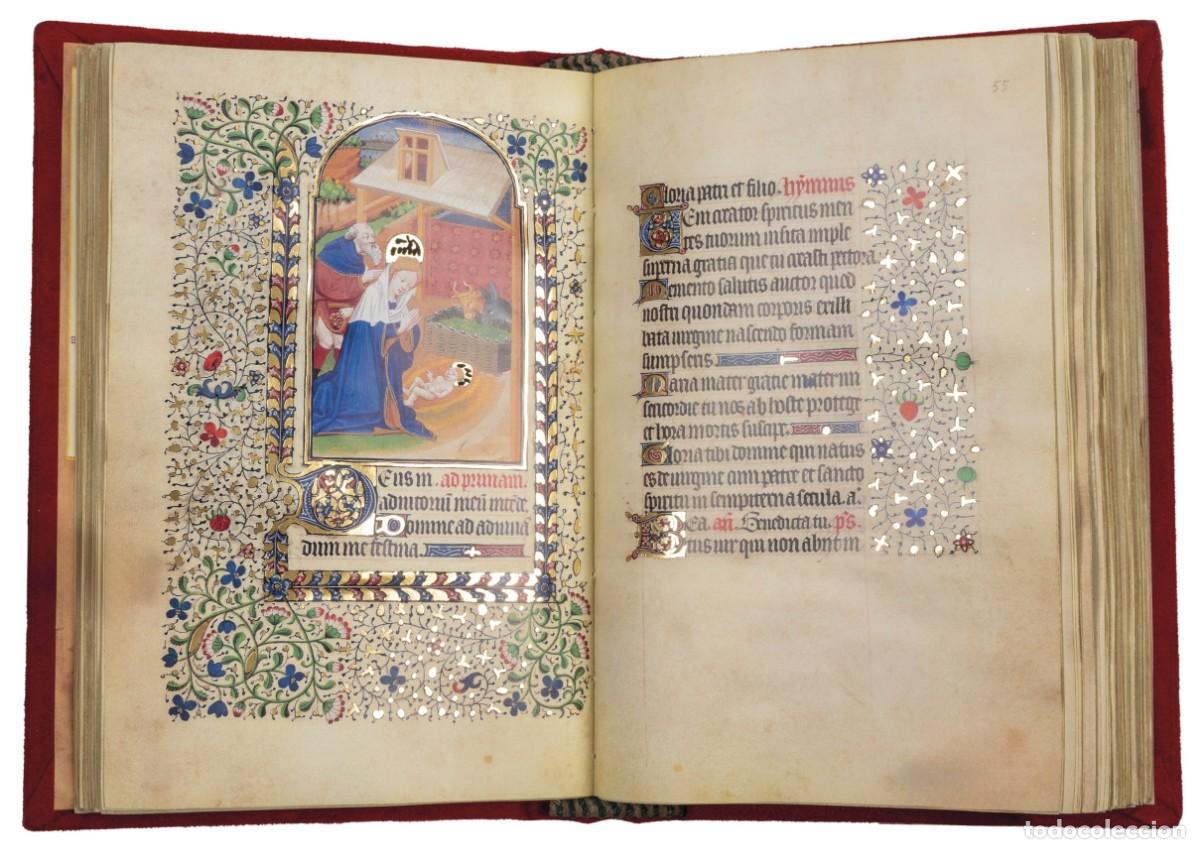 Eus in. ad primam.
adiutoriū meū intēde.
Domine ad adiuuā
dum me festina.
55
Gloria patri et filio. hȳmnus
Veni creator spiritus men
tes tuorum uisita imple
superna gratia que tu creasti pectora
Memento salutis auctor quod
nostri quondam corporis ex illi
bata uirgine nascendo formam
sumpseris
Maria mater gratie mater mi
sericordie tu nos ab hoste protege
et hora mortis suscipe
Gloria tibi domine qui natus
es de uirgine cum patre et sancto
spiritu in sempiterna secula. a.
Ea. añ. Benedicta tu. p̄s.
Btus uir qui non abijt in
todocoleccion